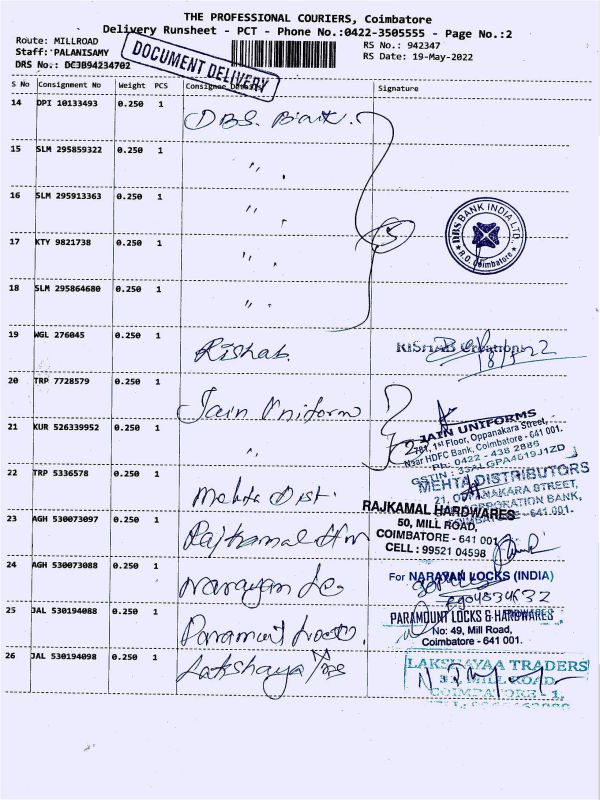 THE PROFESSIONAL COURIERS, Coimbatore
Delivery Runsheet - PCT - Phone No.:0422-3505555 - Page No.:2
Route: MILLROAD
RS No.: 942347
Staff: PALANISAMY
RS Date: 19-May-2022
DRS No.: DCJB94234702
DOCUMENT DELIVERY
S No Consignment No Weight PCS Consignee Details Signature
14 DPI 10133493 0.250 1 DBS. Bank.
15 SLM 295859322 0.250 1 "
16 SLM 295913363 0.250 1 "
DBS BANK INDIA LTD.
R.O. Coimbatore
17 KTY 9821738 0.250 1 "
18 SLM 295864680 0.250 1 "
19 WGL 276045 0.250 1 Rishab.
RISHAB Creations
20 TRP 7728579 0.250 1 Jain Uniform
21 KUR 526339952 0.250 1 "
JAIN UNIFORMS
781, 1st Floor, Oppanakara Street,
Near HDFC Bank, Coimbatore - 641 001.
Ph: 0422 - 438 2886
GSTIN : 33ALGPA4619J1ZD
22 TRP 5336578 0.250 1 Mehta Dist.
MEHTA DISTRIBUTORS
STREET,
CORPORATION BANK,
641.001.
23 AGH 530073097 0.250 1 Rajkamal
RAJKAMAL HARDWARES
50, MILL ROAD,
COIMBATORE - 641 001
CELL : 99521 04598
24 AGH 530073088 0.250 1 Narayan
For NARAYAN LOCKS (INDIA)
25 JAL 530194088 0.250 1 Paramount Locks.
PARAMOUNT LOCKS & HARDWARES
No: 49, Mill Road,
Coimbatore - 641 001.
26 JAL 530194098 0.250 1 Lakshaya
LAKSHAYAA TRADERS
MILL ROAD,
COIMBATORE - 1.